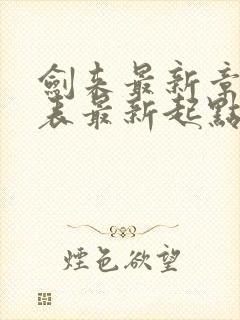 劍来最新章
表最新起點
煙色欲望